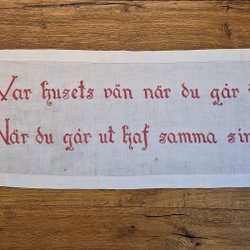 Var husets vän när du går
När du går ut haf samma